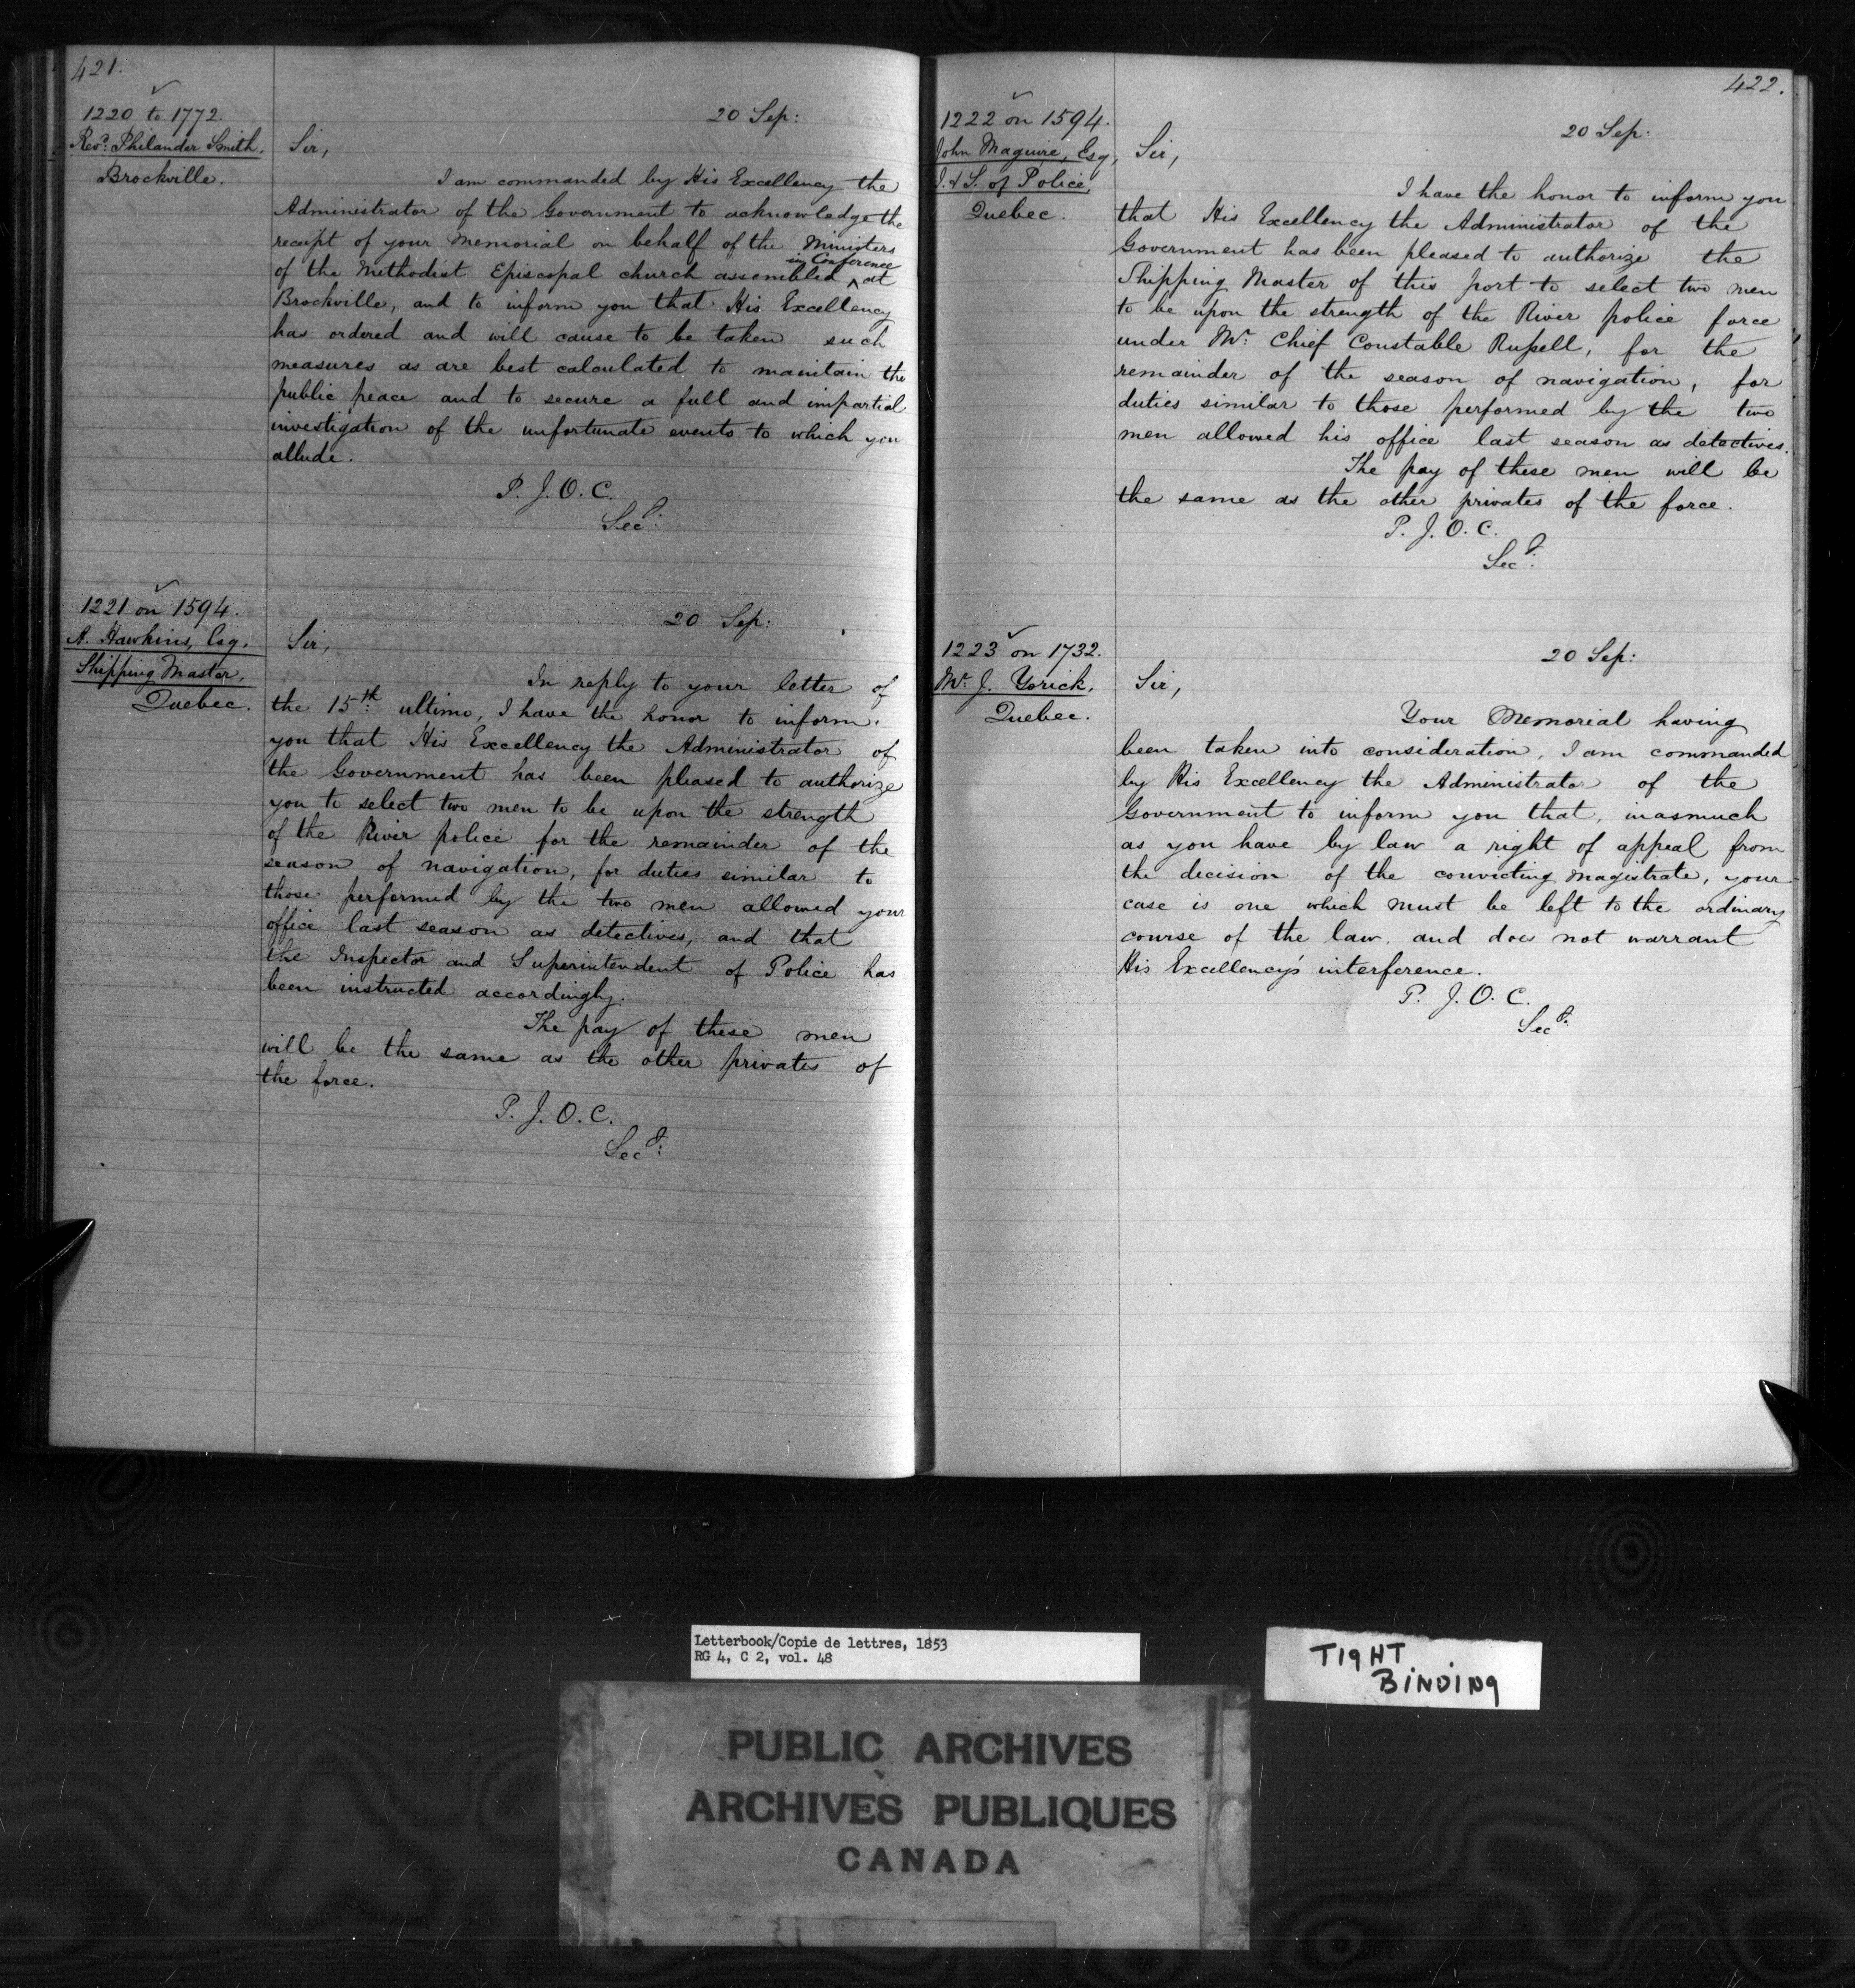 421.
1220 to 1772.
Revd. Philander Smith.
Brockville.
20 Sep:
Sir,
I am commanded by His Excellency the
Administrator of the Government to acknowledge the
receipt of your Memorial on behalf of the Ministers
of the Methodist Episcopal church assembled ^ in Conference at
Brockville, and to inform you that His Excellency
has ordered and will cause to be taken such
measures as are best calculated to maintain the
public peace and to secure a full and impartial
investigation of the unfortunate events to which you
allude.
P. J. O. C.
Secy:
1221 on 1594.
A. Hawkins, Esq.
Shipping Master,
Quebec.
20 Sep:
Sir,
In reply to your letter of
the 15th: ultimo, I have the honor to inform
you that His Excellency the Administrator of
the Government has been pleased to authorize
you to select two men to be upon the strength
of the River police for the remainder of the
season of navigation, for duties similar to
those performed by the two men allowed your
office last season as detectives, and that
the Inspector and Superintendent of Police has
been instructed accordingly.
The pay of these men
will be the same as the other privates of
the force.
P. J. O. C.
Secy:
422.
1222 on 1594.
John Maguire, Esq,
I. & S. of Police,
Quebec.
20 Sep:
Sir,
I have the honor to inform you
that His Excellency the Administrator of the
Government has been pleased to authorize the
Shipping Master of this port to select two men
to be upon the strength of the River police force
under Mr. Chief Constable Russell, for the
remainder of the season of navigation, for
duties similar to those performed by the two
men allowed his office last season as detectives.
The pay of these men will be
the same as the other privates of the force.
P. J. O. C.
Secy:
1223 on 1732.
Mr. J. Yorick.
Quebec.
20 Sep:
Sir,
Your Memorial having
been taken into consideration, I am commanded
by His Excellency the Administrator of the
Government to inform you that, inasmuch
as you have by law a right of appeal from
the decision of the convicting Magistrate, your
case is one which must be left to the ordinary
course of the law, and does not warrant
His Excellency's interference.
P. J. O. C.
Secy:
Letterbook/Copie de lettres, 1853
RG 4, C 2, vol. 48
TIGHT
BINDING
PUBLIC ARCHIVES
ARCHIVES PUBLIQUES
CANADA